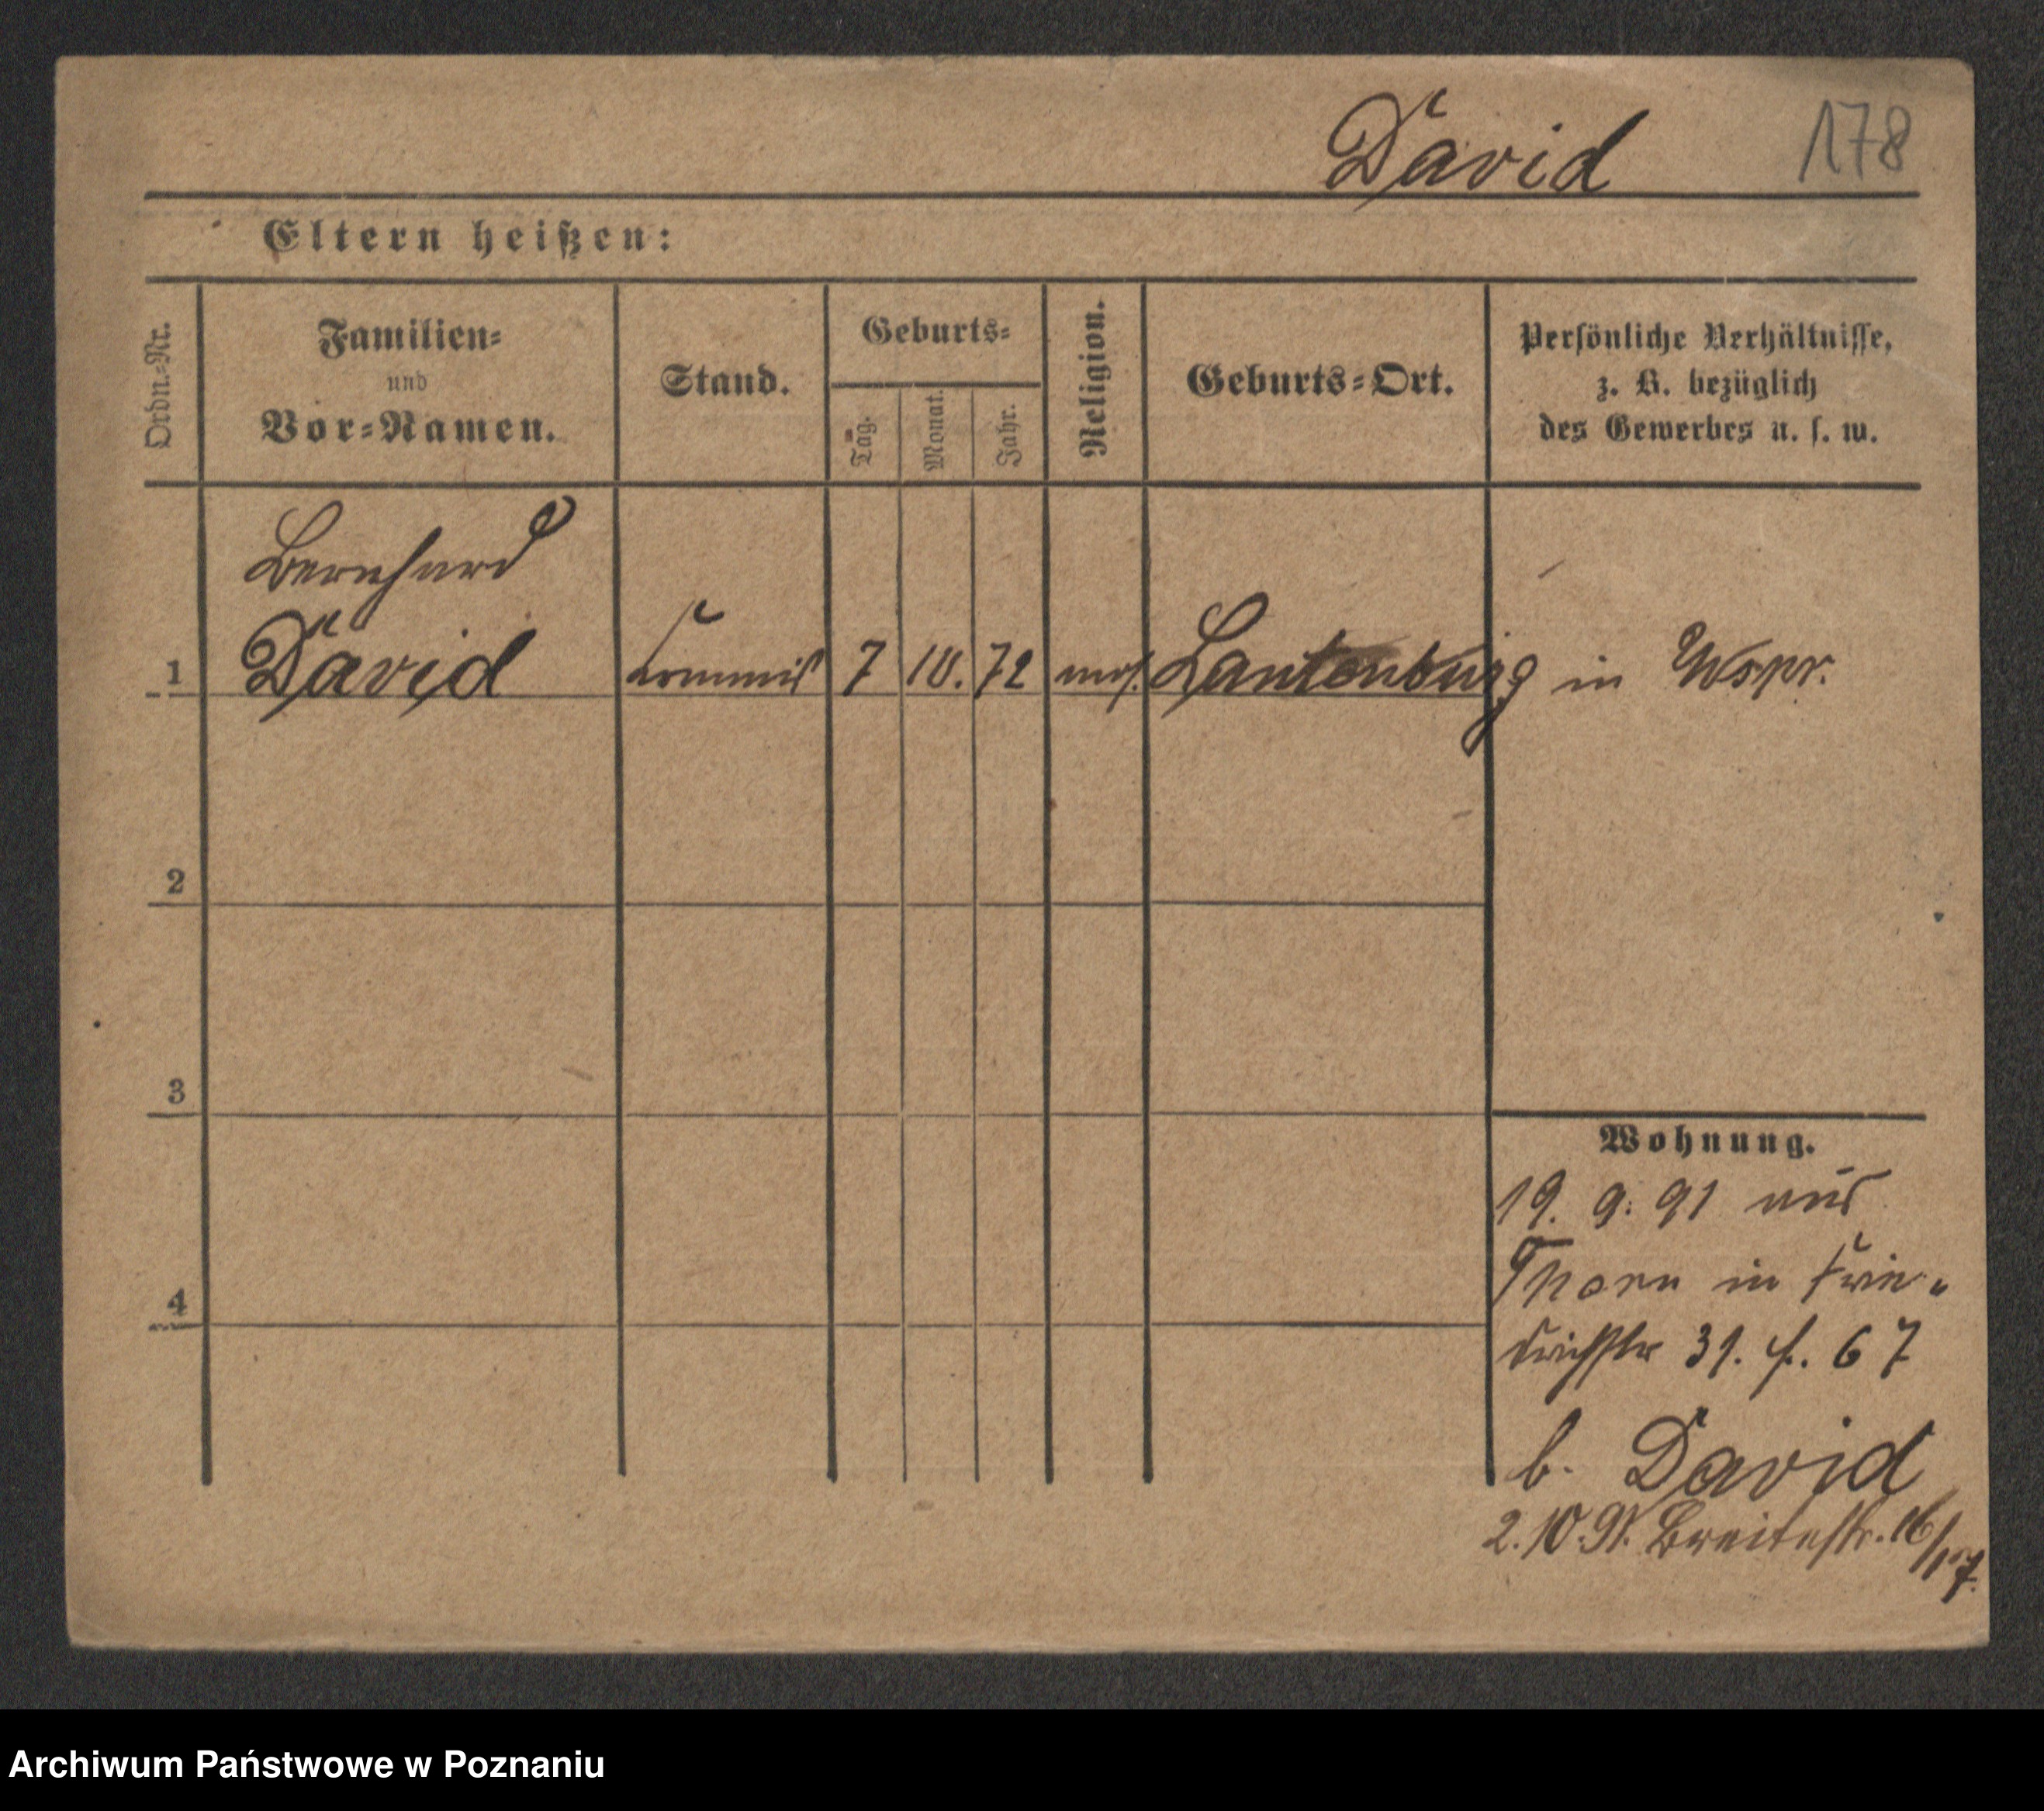 David 178
Eltern heißen:
Ordn.-Nr.
Familien-
und
Vor-Namen.
Stand.
Geburts-
Tag.
Monat.
Jahr.
Religion.
Geburts-Ort.
Persönliche Verhältnisse,
z. B. bezüglich
des Gewerbes u. s. w.
Bernhard
1 David Commis 7 10. 72 mos. Lautenburg in Wspr.
2
3
4
Wohnung.
19. 9. 91 aus
Thorn in Frie-
drichstr 31. f. 67
b. David
2.10.91. Breitestr. 16/17.
Archiwum Państwowe w Poznaniu